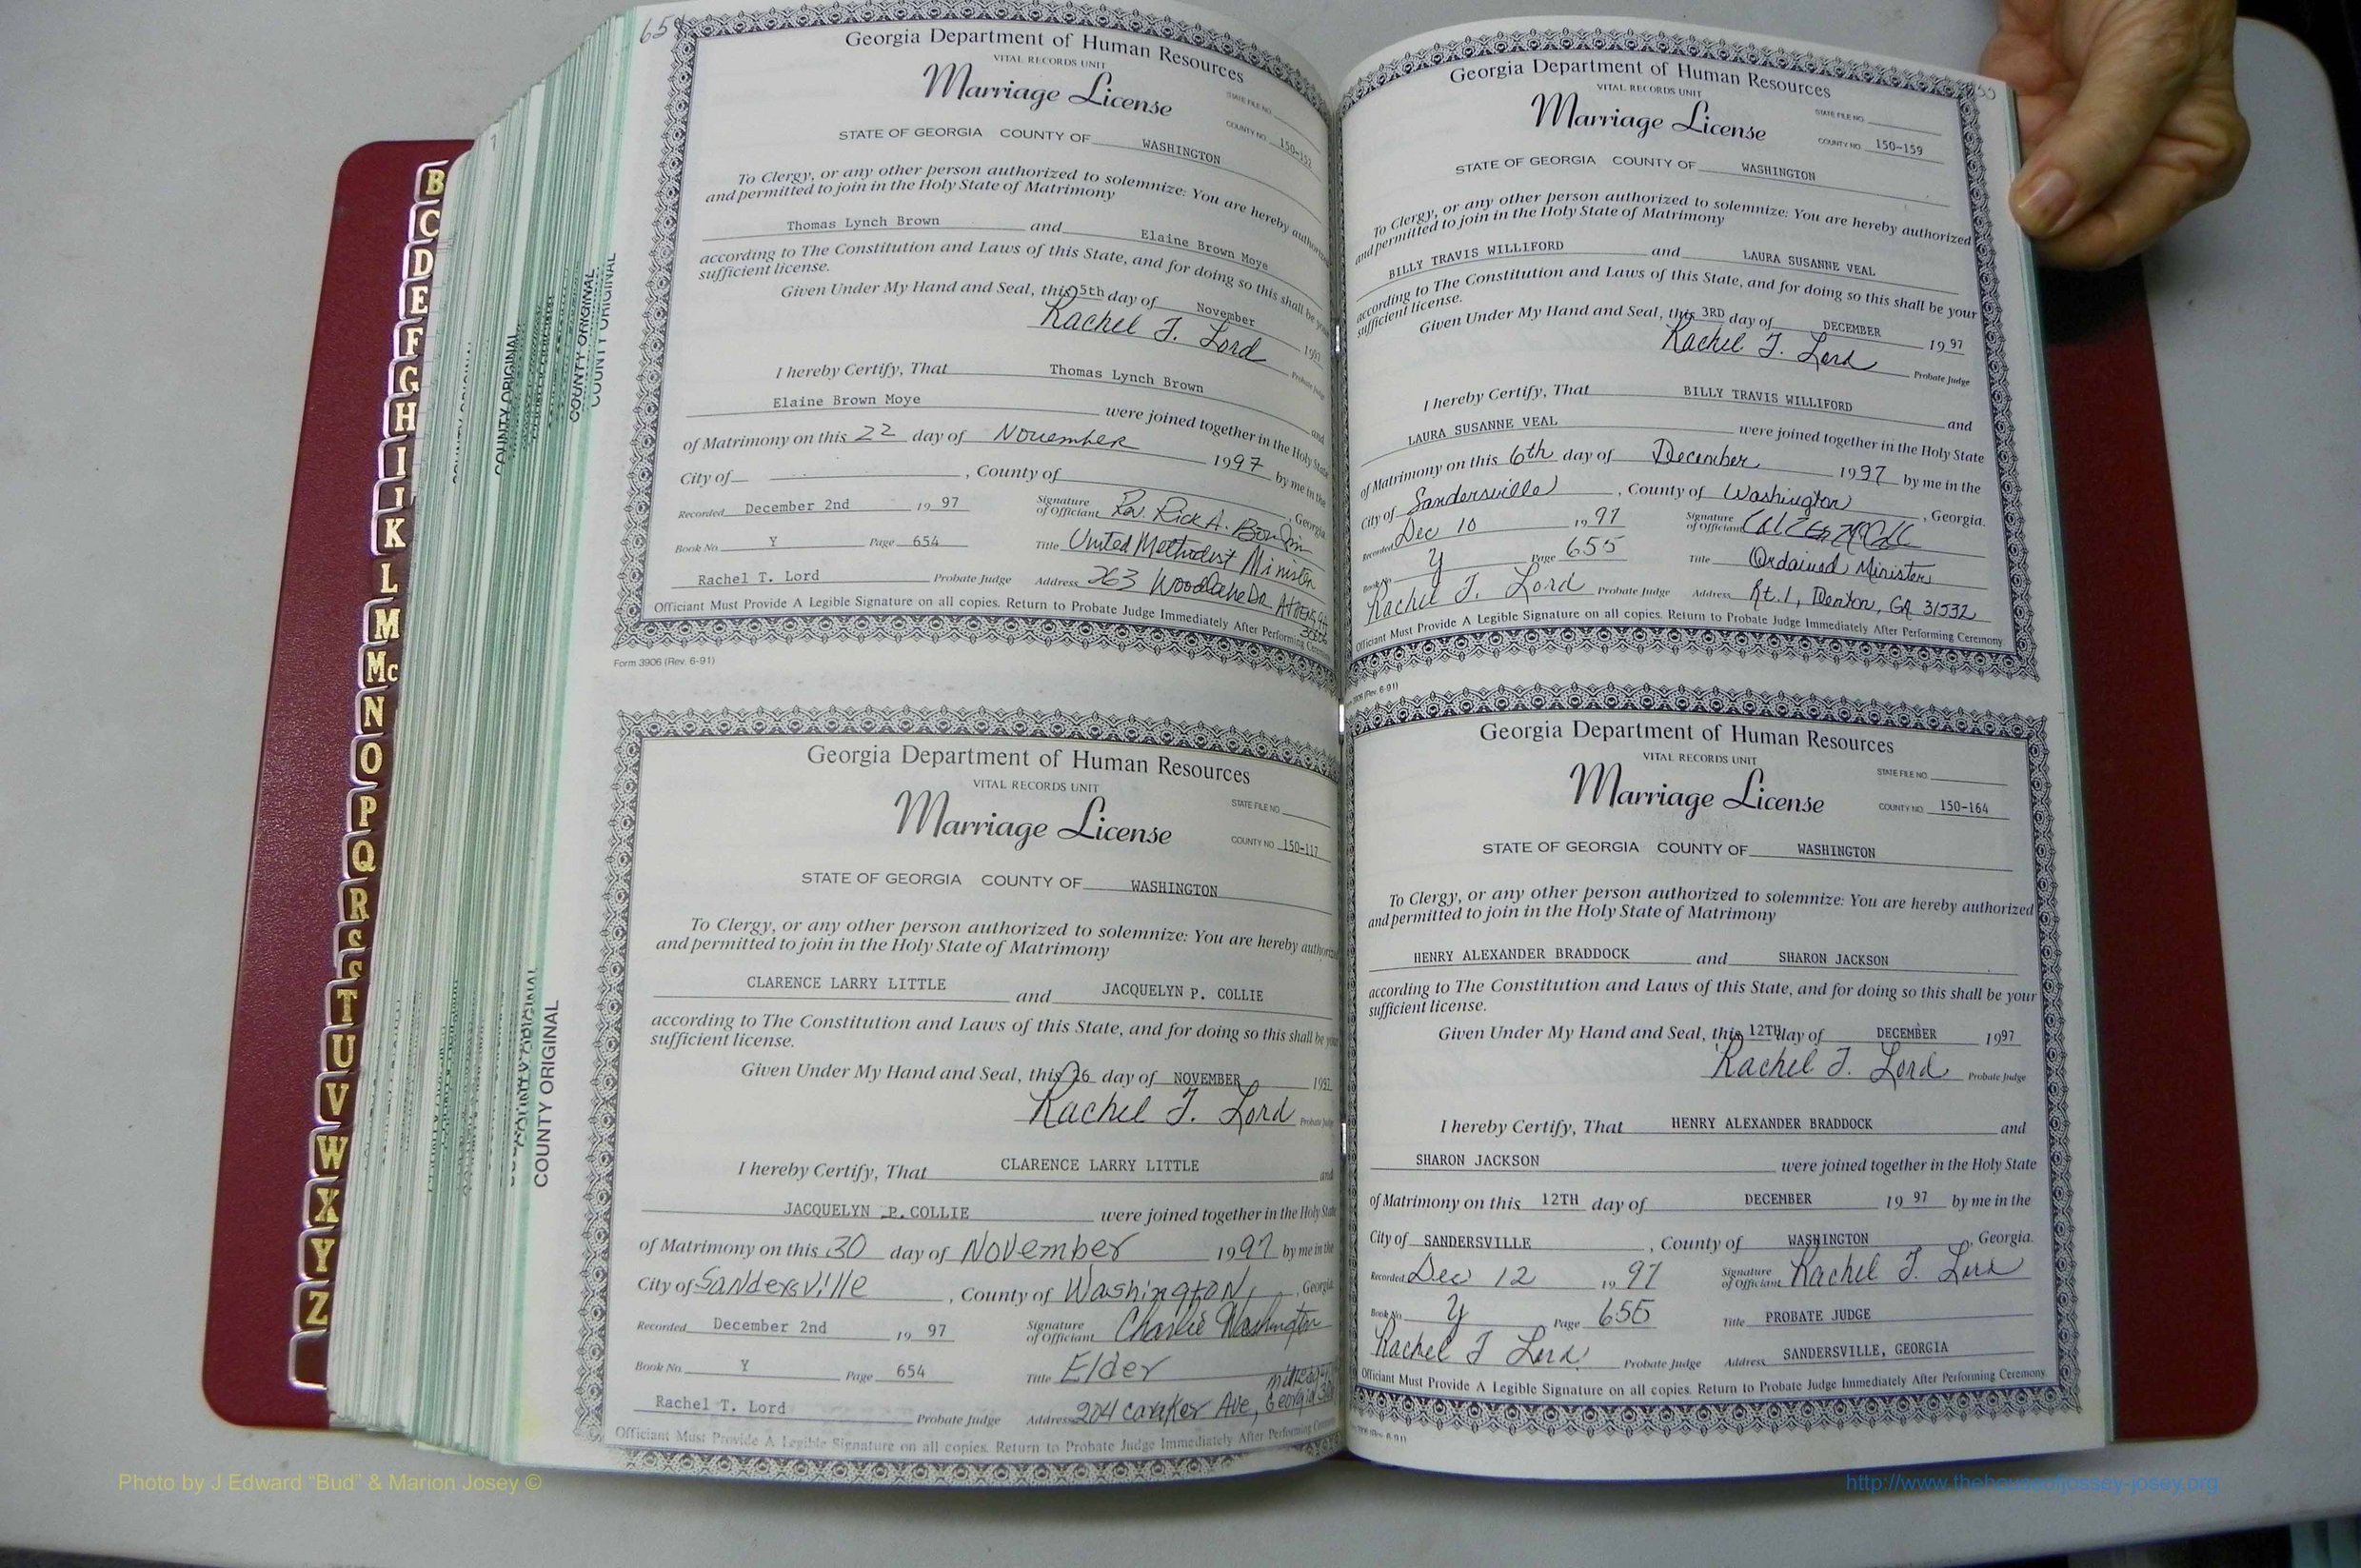 654
Georgia Department of Human Resources
VITAL RECORDS UNIT
Marriage License
STATE FILE NO.
COUNTY NO. 150-152
STATE OF GEORGIA COUNTY OF WASHINGTON
To Clergy, or any other person authorized to solemnize: You are hereby authorized
and permitted to join in the Holy State of Matrimony
Thomas Lynch Brown and Elaine Brown Moye
according to The Constitution and Laws of this State, and for doing so this shall be your
sufficient license.
Given Under My Hand and Seal, this 5th day of November 1997
Rachel T. Lord Probate Judge
I hereby Certify, That Thomas Lynch Brown and
Elaine Brown Moye were joined together in the Holy State
of Matrimony on this 22 day of November 1997 by me in the
City of , County of , Georgia
Recorded December 2nd 19 97 Signature of Officiant Rev. Rick A.
Book No. Y Page 654 Title United Methodist Minister
Rachel T. Lord Probate Judge Address 263 Woodlake Dr. Athens, GA
Officiant Must Provide A Legible Signature on all copies. Return to Probate Judge Immediately After Performing Ceremony
Form 3906 (Rev. 6-91)
Georgia Department of Human Resources
VITAL RECORDS UNIT
Marriage License
STATE FILE NO.
COUNTY NO. 150-117
STATE OF GEORGIA COUNTY OF WASHINGTON
To Clergy, or any other person authorized to solemnize: You are hereby authorized
and permitted to join in the Holy State of Matrimony
CLARENCE LARRY LITTLE and JACQUELYN P. COLLIE
according to The Constitution and Laws of this State, and for doing so this shall be your
sufficient license.
Given Under My Hand and Seal, this 26 day of NOVEMBER 1997
Rachel T. Lord Probate Judge
I hereby Certify, That CLARENCE LARRY LITTLE and
JACQUELYN P. COLLIE were joined together in the Holy State
of Matrimony on this 30 day of November 1997 by me in the
City of Sandersville , County of Washington , Georgia
Recorded December 2nd 19 97 Signature of Officiant Charlie Washington
Book No. Y Page 654 Title Elder
Rachel T. Lord Probate Judge Address 204 Ave, Georgia
Officiant Must Provide A Legible Signature on all copies. Return to Probate Judge Immediately After Performing Ceremony
Georgia Department of Human Resources
VITAL RECORDS UNIT
Marriage License
STATE FILE NO.
COUNTY NO. 150-159
STATE OF GEORGIA COUNTY OF WASHINGTON
To Clergy, or any other person authorized to solemnize: You are hereby authorized
and permitted to join in the Holy State of Matrimony
BILLY TRAVIS WILLIFORD and LAURA SUSANNE VEAL
according to The Constitution and Laws of this State, and for doing so this shall be your
sufficient license.
Given Under My Hand and Seal, this 3RD day of DECEMBER 19 97
Rachel T. Lord Probate Judge
I hereby Certify, That BILLY TRAVIS WILLIFORD and
LAURA SUSANNE VEAL were joined together in the Holy State
of Matrimony on this 6th day of December 1997 by me in the
City of Sandersville , County of Washington , Georgia.
Recorded Dec 10 19 97 Signature of Officiant
Book No. Y Page 655 Title Ordained Minister
Rachel T. Lord Probate Judge Address Rt. 1, Denton, GA 31532
Officiant Must Provide A Legible Signature on all copies. Return to Probate Judge Immediately After Performing Ceremony.
(Rev. 6-91)
Georgia Department of Human Resources
VITAL RECORDS UNIT
Marriage License
STATE FILE NO.
COUNTY NO. 150-164
STATE OF GEORGIA COUNTY OF WASHINGTON
To Clergy, or any other person authorized to solemnize: You are hereby authorized
and permitted to join in the Holy State of Matrimony
HENRY ALEXANDER BRADDOCK and SHARON JACKSON
according to The Constitution and Laws of this State, and for doing so this shall be your
sufficient license.
Given Under My Hand and Seal, this 12TH day of DECEMBER 1997
Rachel T. Lord Probate Judge
I hereby Certify, That HENRY ALEXANDER BRADDOCK and
SHARON JACKSON were joined together in the Holy State
of Matrimony on this 12TH day of DECEMBER 19 97 by me in the
City of SANDERSVILLE , County of WASHINGTON , Georgia.
Recorded Dec 12 19 97 Signature of Officiant Rachel T. Lord
Book No. Y Page 655 Title PROBATE JUDGE
Rachel T Lord Probate Judge Address SANDERSVILLE, GEORGIA
Officiant Must Provide A Legible Signature on all copies. Return to Probate Judge Immediately After Performing Ceremony.
B
C
D
E
F
G
H
I
K
L
M
Mc
N
O
P
Q
R
S
T
U
V
W
X
Y
Z
COUNTY ORIGINAL
COUNTY ORIGINAL
COUNTY ORIGINAL
COUNTY ORIGINAL
Photo by J Edward “Bud” & Marion Josey ©
http://www.thehouseofjossey-josey.org